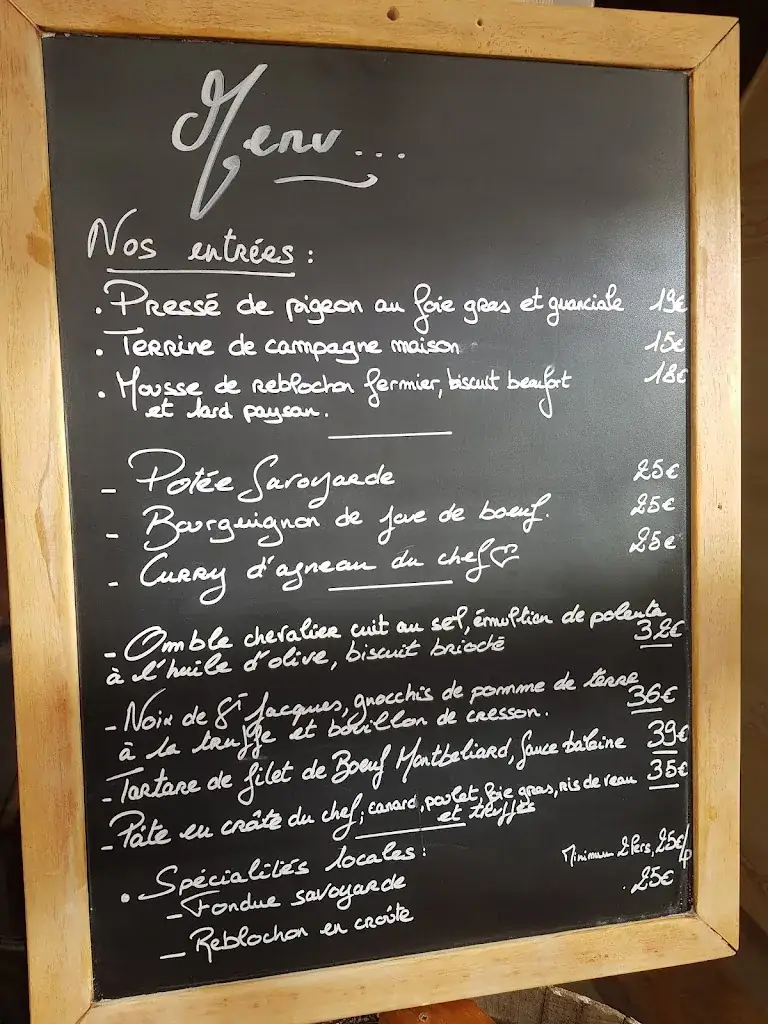 Menu...
Nos entrées :
. Pressé de pigeon au foie gras et guanciale 19€
. Terrine de campagne maison 15€
. Mousse de reblochon fermier, biscuit beaufort 18€
et lard paysan.
- Potée Savoyarde 25€
- Bourguignon de joue de boeuf. 25€
- Curry d'agneau du chef♡ 25€
- Omble chevalier cuit au sel, émultion de polenta
à l'huile d'olive, biscuit brioché 32€
- Noix de St Jacques, gnocchis de pomme de terre
à la truffe et bouillon de cresson. 36€
- Tartare de filet de Boeuf Montbeliard, sauce 39€
- Pâte en croûte du chef; canard, poulet, foie gras, ris de veau 35€
et truffes
. Spécialités locales :
- Fondue savoyarde Minimum 2 Pers, 25€/p
- Reblochon en croûte . 25€